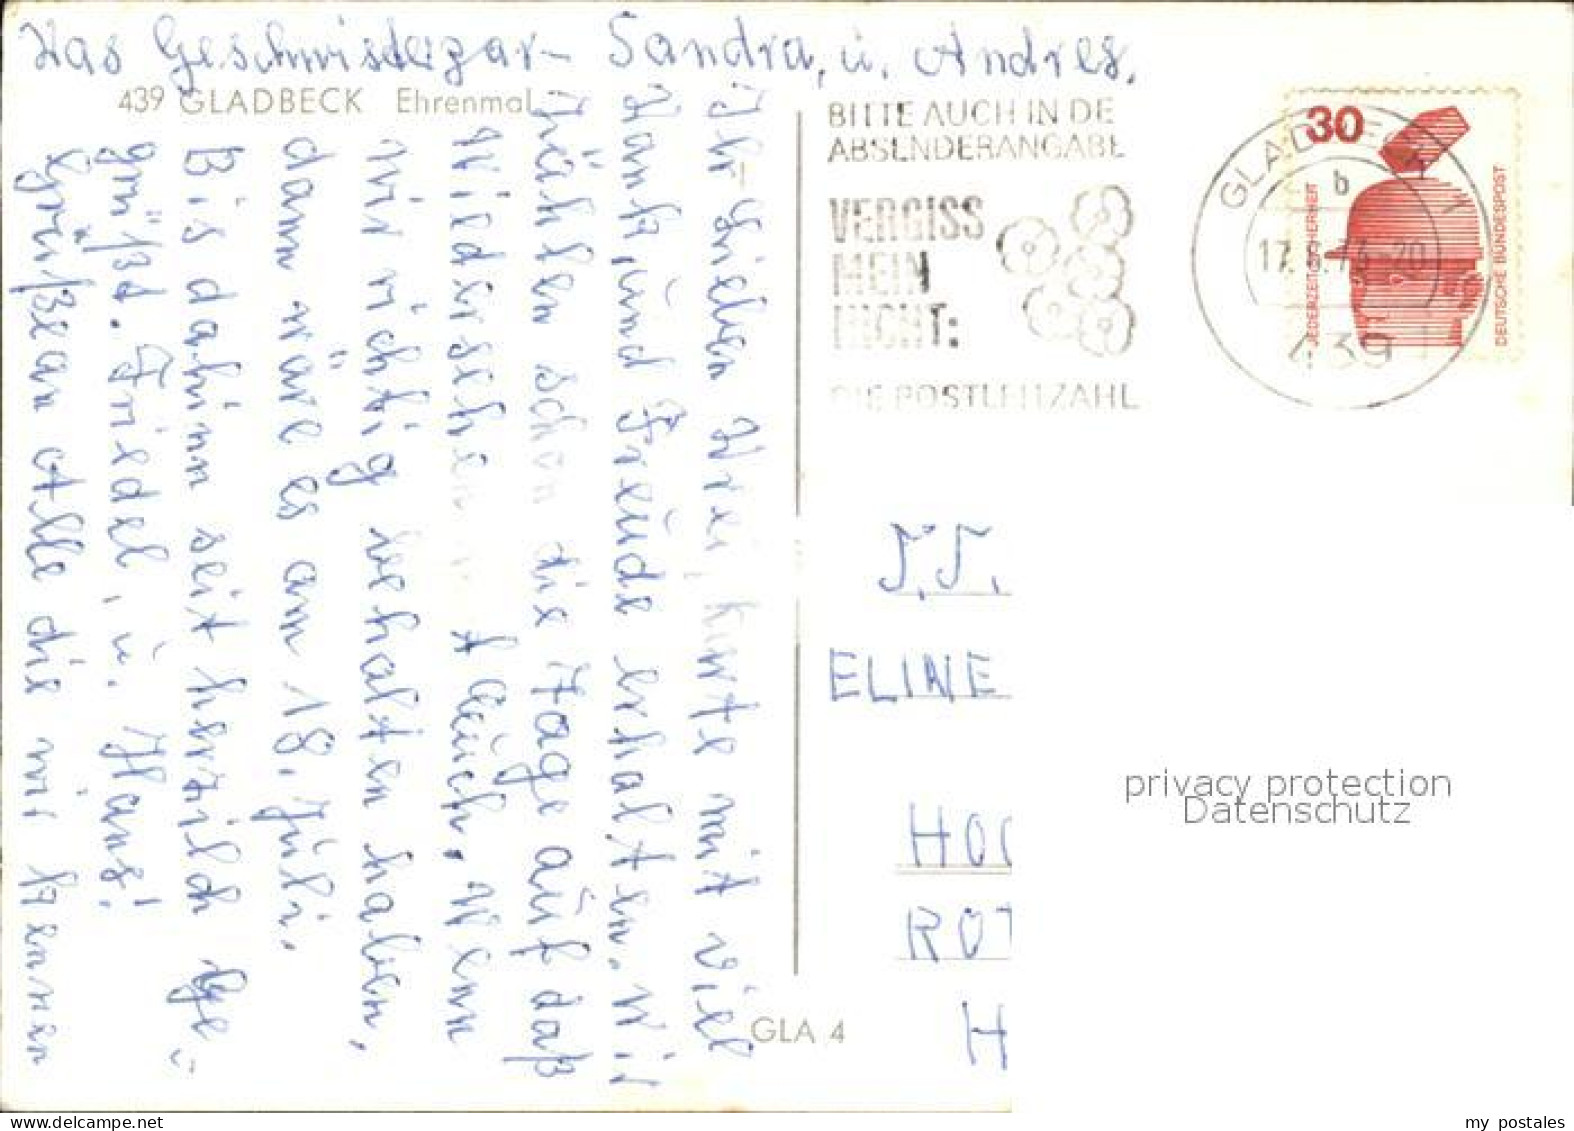 Das Geschwisterpar- Sandra, u. Andres.
439 GLADBECK Ehrenmal
Ihr Lieben Drei, Karte mit viel
Dank, und Freude erhalten. Wir
zählen schon die Tage auf daß
Wiedersehen Eüch, Wenn
wir richtig behalten haben,
dann wäre es am 18. Jüli.
Bis dahinn seit herzlich ge-
grüßt. Friedel, u. Hans!
Grüßean Alle die wir kennen
GLA 4
BITTE AUCH IN DE
ABSENDERANGABE
VERGISS
MEIN
NICHT:
DIE POSTLEITZAHL
GLADBECK 1
b
17.6.74-20
439
30
JEDERZEIT SICHERHEIT
DEUTSCHE BUNDESPOST
ELINE
HOC
ROT
H
privacy protection
Datenschutz
my postales